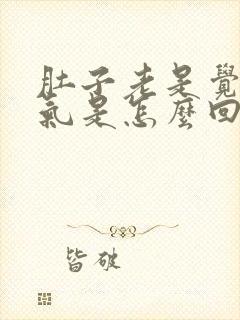 肚子老是覺
氣是怎麼回
皆破